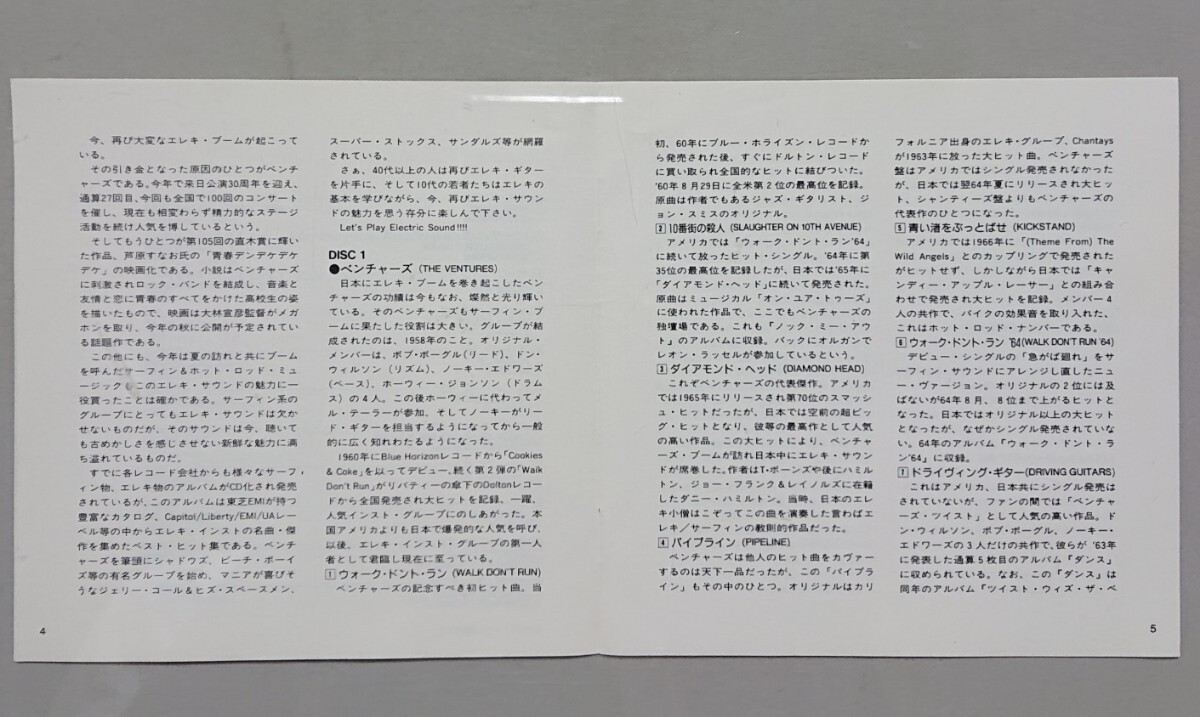 今、再び大変なエレキ・ブームが起こって
いる。
その引き金となった原因のひとつがベンチ
ャーズである。今年で来日公演30周年を迎え、
通算27回目、今回も全国で100回のコンサート
を催し、現在も相変わらず精力的なステージ
活動を続け人気を博しているという。
そしてもうひとつが第105回の直木賞に輝い
た作品、芦原すなお氏の「青春デンデケデケ
デケ」の映画化である。小説はベンチャーズ
に刺激されロック・バンドを結成し、音楽と
友情と恋に青春のすべてをかけた高校生の姿
を描いたもので、映画は大林宣彦監督がメガ
ホンを取り、今年の秋に公開が予定されてい
る話題作である。
この他にも、今年は夏の訪れと共にブーム
を呼んだサーフィン&ホット・ロッド・ミュ
ージックもこのエレキ・サウンドの魅力に一
役買ったことは確かである。サーフィン系の
グループにとってもエレキ・サウンドは欠か
せないものだが、そのサウンドは今、聴いて
も古めかしさを感じさせない新鮮な魅力に満
ち溢れているものだ。
すでに各レコード会社からも様々なサーフィ
ン物、エレキ物のアルバムがCD化され発売
されているが、このアルバムは東芝EMIが持つ
豊富なカタログ、Capitol/Liberty/EMI/UAレー
ベル等の中からエレキ・インストの名曲・傑
作を集めたベスト・ヒット集である。ベンチ
ャーズを筆頭にシャドウズ、ビーチ・ボーイ
ズ等の有名グループを始め、マニアが喜びそ
うなジェリー・コール&ヒズ・スペースメン、
4
スーパー・ストックス、サンダルズ等が網羅
されている。
さぁ、40代以上の人は再びエレキ・ギター
を片手に、そして10代の若者たちはエレキの
基本を学びながら、今、再びエレキ・サウン
ドの魅力を思う存分に楽しんで下さい。
Let's Play Electric Sound!!!!
DISC 1
●ベンチャーズ (THE VENTURES)
日本にエレキ・ブームを巻き起こしたベン
チャーズの功績は今もなお、燦然と光り輝い
ている。そのベンチャーズもサーフィン・ブ
ームに果たした役割は大きい。グループが結
成されたのは、1958年のこと。オリジナル・
メンバーは、ボブ・ボーグル(リード)、ドン・
ウィルソン (リズム)、ノーキー・エドワーズ
(ベース)、ホーウィー・ジョンソン (ドラム
ス) の4人。この後ホーウィーに代わってメ
ル・テーラーが参加、そしてノーキーがリー
ド・ギターを担当するようになってから一般
的に広く知れわたるようになった。
1960年にBlue Horizonレコードから「Cookies
& Coke」を以ってデビュー、続く第2弾の「Walk
Don't Run」がリバティーの傘下のDoltonレコー
ドから全国発売され大ヒットを記録、一躍、
人気インスト・グループにのしあがった。本
国アメリカよりも日本で爆発的な人気を呼び、
以後、エレキ・インスト・グループの第一人
者として君臨し現在に至っている。
1 ウォーク・ドント・ラン (WALK DON'T RUN)
ベンチャーズの記念すべき初ヒット曲。当
初、60年にブルー・ホライズン・レコードか
ら発売された後、すぐにドルトン・レコード
に買い取られ全国的なヒットに結びついた。
'60年8月29日に全米第2位の最高位を記録。
原曲は作者でもあるジャズ・ギタリスト、ジ
ョン・スミスのオリジナル。
2 10番街の殺人 (SLAUGHTER ON 10TH AVENUE)
アメリカでは「ウォーク・ドント・ラン'64」
に続いて放ったヒット・シングル。'64年に第
35位の最高位を記録したが、日本では'65年に
「ダイアモンド・ヘッド」に続いて発売された。
原曲はミュージカル「オン・ユア・トゥーズ」
に使われた作品で、ここでもベンチャーズの
独壇場である。これも「ノック・ミー・アウ
ト」のアルバムに収録。バックにオルガンで
レオン・ラッセルが参加しているという。
3 ダイアモンド・ヘッド (DIAMOND HEAD)
これぞベンチャーズの代表傑作。アメリカ
では1965年にリリースされ第70位のスマッシ
ュ・ヒットだったが、日本では空前の超ビッ
グ・ヒットとなり、彼等の最高作として人気
の高い作品。この大ヒットにより、ベンチャ
ーズ・ブームが訪れ日本中にエレキ・サウン
ドが席巻した。作者はT・ボーンズや後にハミル
トン、ジョー・フランク&レイノルズに在籍
したダニー・ハミルトン。当時、日本のエレ
キ小僧はこぞってこの曲を演奏した言わばエ
レキ/サーフィンの教則的作品だった。
4 パイプライン (PIPELINE)
ベンチャーズは他人のヒット曲をカヴァー
するのは天下一品だったが、この「パイプラ
イン」もその中のひとつ。オリジナルはカリ
フォルニア出身のエレキ・グループ、Chantays
が1963年に放った大ヒット曲。ベンチャーズ
盤はアメリカではシングル発売されなかった
が、日本では翌64年夏にリリースされ大ヒッ
ト、シャンティーズ盤よりもベンチャーズの
代表作のひとつになった。
5 青い渚をぶっとばせ (KICKSTAND)
アメリカでは1966年に「(Theme From) The
Wild Angels」とのカップリングで発売された
がヒットせず、しかしながら日本では「キャ
ンディー・アップル・レーサー」との組み合
わせで発売され大ヒットを記録。メンバー4
人の共作で、バイクの効果音を取り入れた、
これはホット・ロッド・ナンバーである。
6 ウォーク・ドント・ラン '64(WALK DON'T RUN '64)
デビュー・シングルの「急がば廻れ」をサ
ーフィン・サウンドにアレンジし直したニュ
ー・ヴァージョン。オリジナルの2位には及
ばないが64年8月、8位まで上がるヒットと
なった。日本ではオリジナル以上の大ヒット
となったが、なぜかシングル発売されていな
い。64年のアルバム「ウォーク・ドント・ラ
ン'64」に収録。
7 ドライヴィング・ギター(DRIVING GUITARS)
これはアメリカ、日本共にシングル発売は
されていないが、ファンの間では「ベンチャ
ーズ・ツイスト」として人気の高い作品。ド
ン・ウィルソン、ボブ・ボーグル、ノーキー・
エドワーズの3人だけの共作で、彼らが'63年
に発表した通算5枚目のアルバム「ダンス」
に収められている。なお、この「ダンス」は
同年のアルバム「ツイスト・ウィズ・ザ・ベ
5